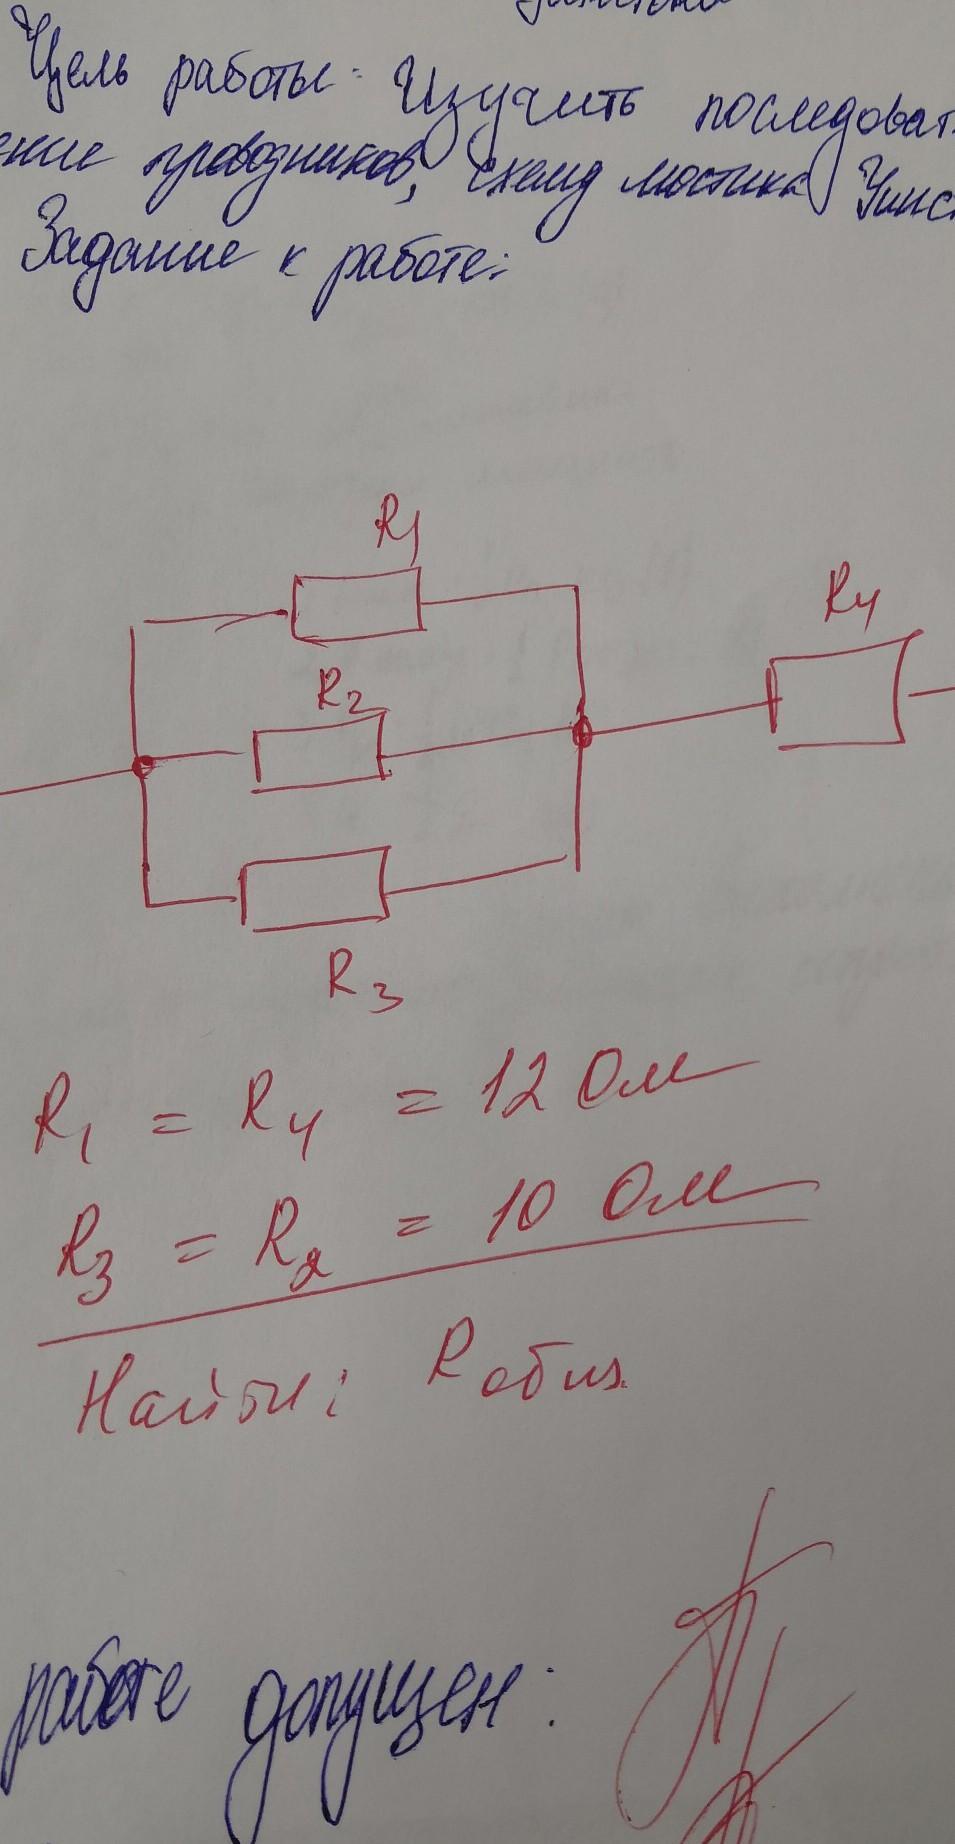 Цель работы: Изучить последоват
ение проводников, схему мостика Уинс
Задание к работе:
R1
R4
R2
R3
R1 = R4 = 12 Ом
R3 = R2 = 10 Ом
Найти: R общ.
работе допущен: